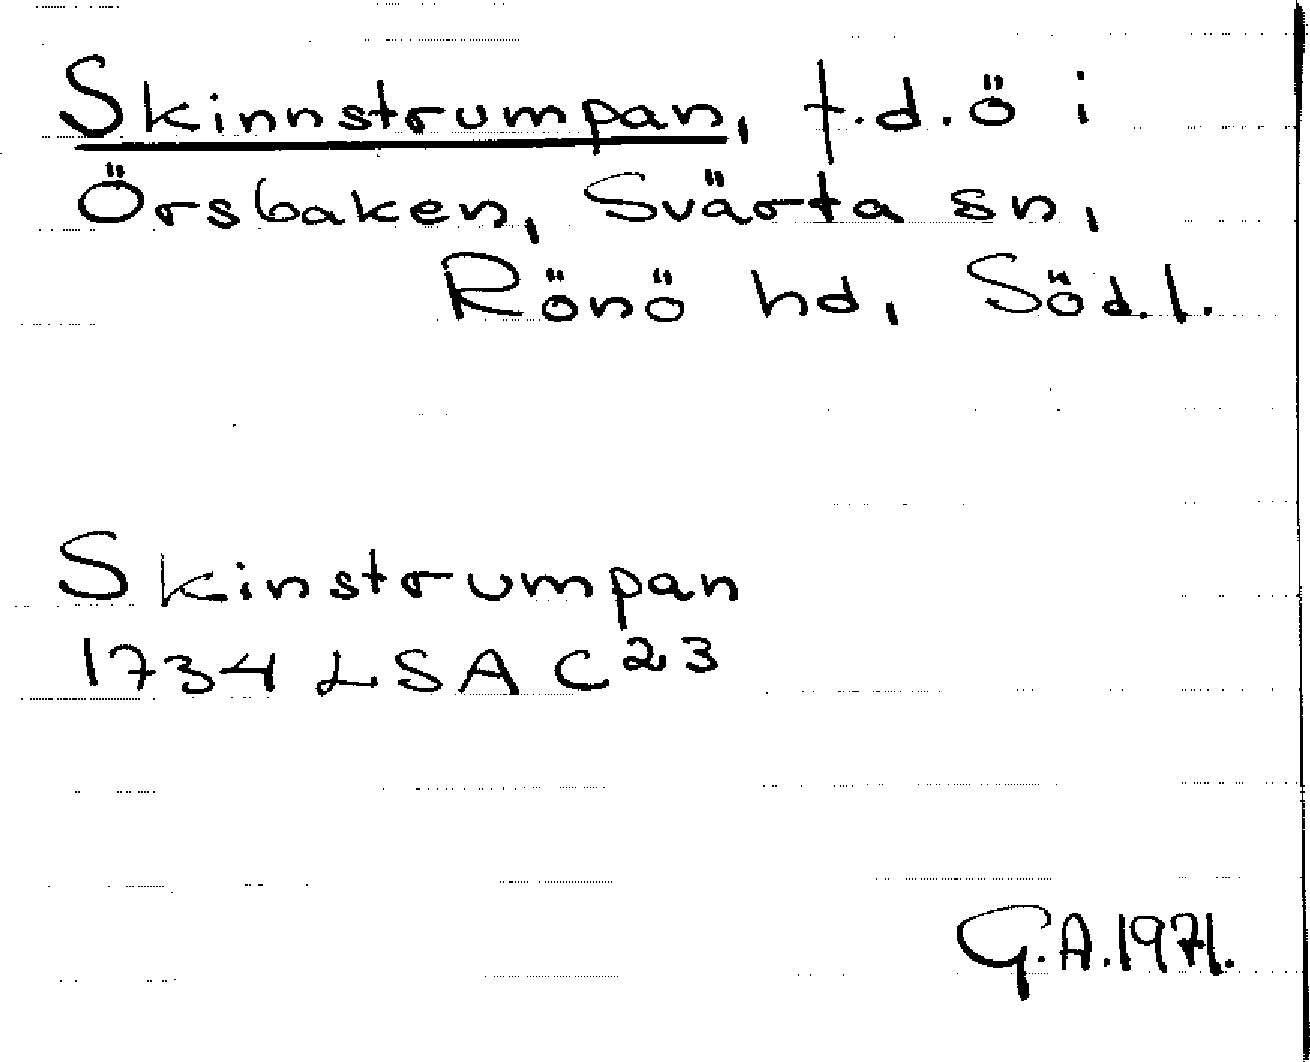 Skinnstrumpan, f.d. ö i
Örsbaken, Svärta sn,
Rönö hd, Söd.l.
Skinstrumpan
1734 LSA C23
G.A.1971.